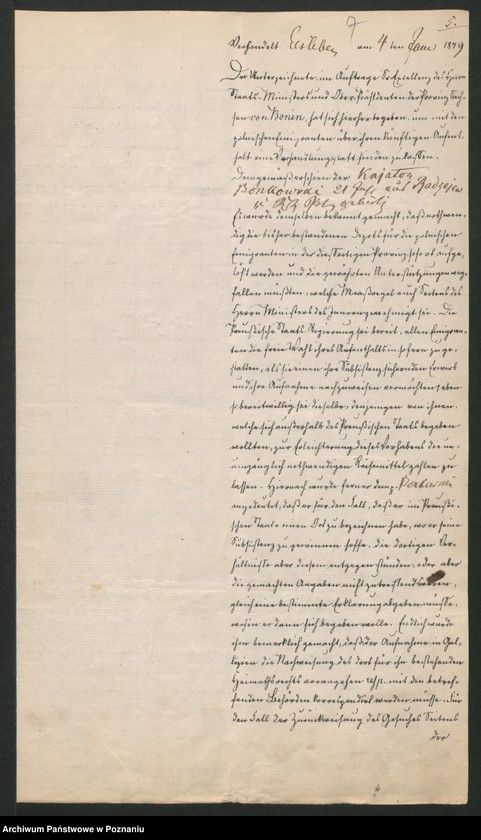 7
5.
Verhandelt Eisleben am 4 ten Juni 1849
Der Unterzeichnete im Auftrage Sr. Excellenz des Herrn
Staats-Ministers und Ober-Präsidenten der Provinz Sach-
sen von Bonin, hat sich hierher begeben, um mit den
polnischen Emigranten über ihren künftigen Aufent-
halt eine Verhandlung statt finden zu lassen.
Demgemäß erschien der Kajetan
Bonkowski 21 Jahr aus Radzejewo
gebürtig
Es wurde demselben bekannt gemacht, daß nothwen-
dig die bisher bestandenen Depots für die polnischen
Emigranten in der diesseitigen Provinz sofort aufge-
löst werden und die gewährten Unterstützungen weg-
fallen müßten, welche Maaßregel auch Seitens des
Herrn Ministers des Innern genehmigt sei. Die
Preußische Staats-Regierung sei bereit, allen Emigran-
ten die freie Wahl ihres Aufenthalts in sofern zu ge-
statten, als sie einen ihre Subsistenz sichernden Erwerb
und ihre Aufnahme nachzuweisen vermöchten, eben
so bereitwillig sei dieselbe, denjenigen von ihnen,
welche sich außerhalb des Preußischen Staats begeben
wollten, zur Erleichterung dieses Vorhabens die un-
umgänglich nothwendigen Reisemittel zahlen zu
lassen. Hiernach wurde ferner dem p. Bonkowski
angedeutet, daß er für den Fall, daß er im Preußi-
schen Staate einen Ort zu bezeichnen habe, wo er seine
Subsistenz zu gewinnen hoffe, die dortigen Ver-
hältnisse aber diesem entgegen stünden, oder aber
die gemachten Angaben nicht zutreffend wären,
gleich eine bestimmte Erklärung abgeben müsse,
wohin er dann sich begeben wolle. Endlich wurde
ihm bemerklich gemacht, daß der Aufnahme in Gal-
lizien die Nachweisung des dort für ihn bestehenden
Heimathsrechts vorangehen resp. mit den betref-
fenden Behörden korrespondirt werden müsse. Für
den Fall der Zurückweisung des Gesuches Seitens
der
Archiwum Państwowe w Poznaniu